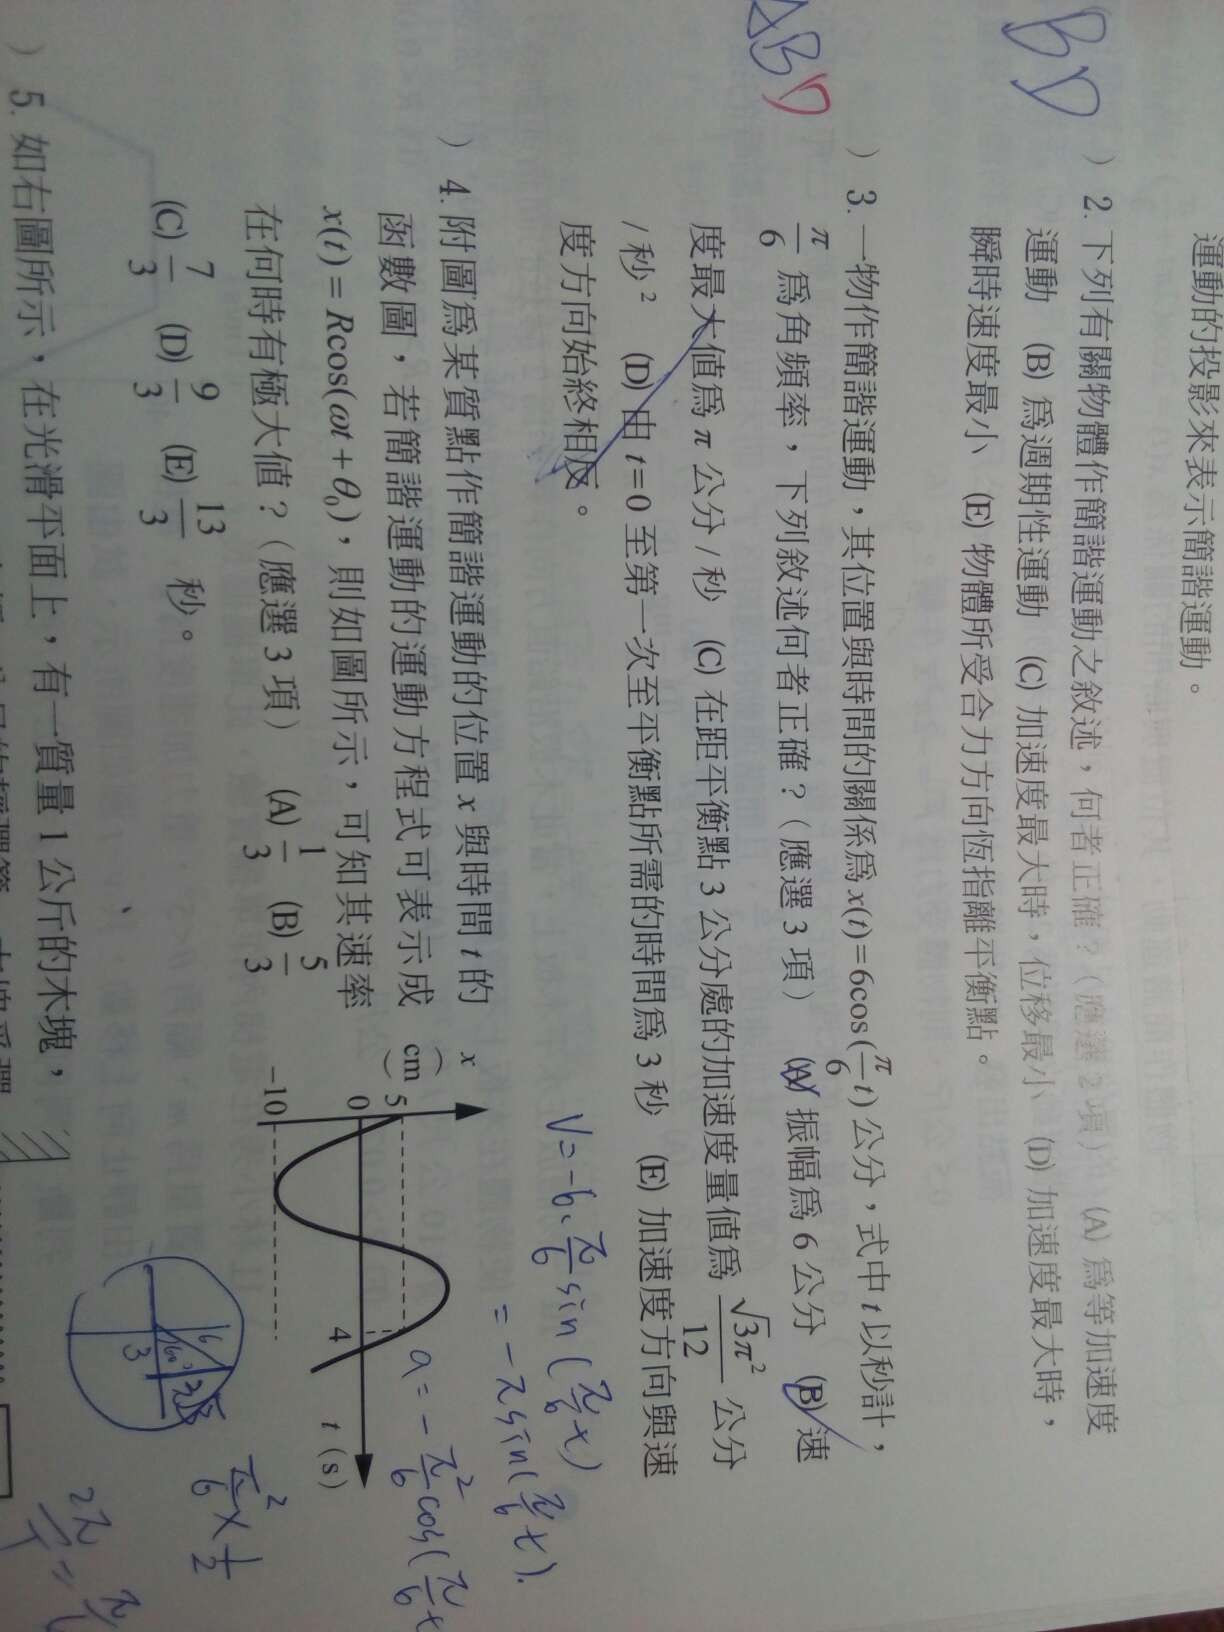 運動的投影來表示簡諧運動。
BD
) 2. 下列有關物體作簡諧運動之敘述，何者正確？（應選 2 項） (A) 爲等加速度
運動 (B) 爲週期性運動 (C) 加速度最大時，位移最小 (D) 加速度最大時，
瞬時速度最小 (E) 物體所受合力方向恆指離平衡點。
ABD
) 3. 一物作簡諧運動，其位置與時間的關係爲 x(t)=6cos(π/6 t) 公分，式中 t 以秒計，
π/6 爲角頻率，下列敘述何者正確？（應選 3 項） (A) 振幅爲 6 公分 (B) 速
度最大值爲 π 公分 / 秒 (C) 在距平衡點 3 公分處的加速度量值爲 √3π²/12 公分
/ 秒² (D) 由 t=0 至第一次至平衡點所需的時間爲 3 秒 (E) 加速度方向與速
度方向始終相反。
V=-6·π/6 sin(π/6 t)
=-πsin(π/6 t).
) 4. 附圖爲某質點作簡諧運動的位置 x 與時間 t 的
函數圖，若簡諧運動的運動方程式可表示成
x(t)=Rcos(ωt+θ₀)，則如圖所示，可知其速率
在何時有極大値？（應選 3 項） (A) 1/3 (B) 5/3
(C) 7/3 (D) 9/3 (E) 13/3 秒。
x
(cm)
5
0
-10
4
t (s)
a=-π²/6 cos(π/6 t
6
60°
3
π²/6 × 1/2
) 5. 如右圖所示，在光滑平面上，有一質量 1 公斤的木塊，